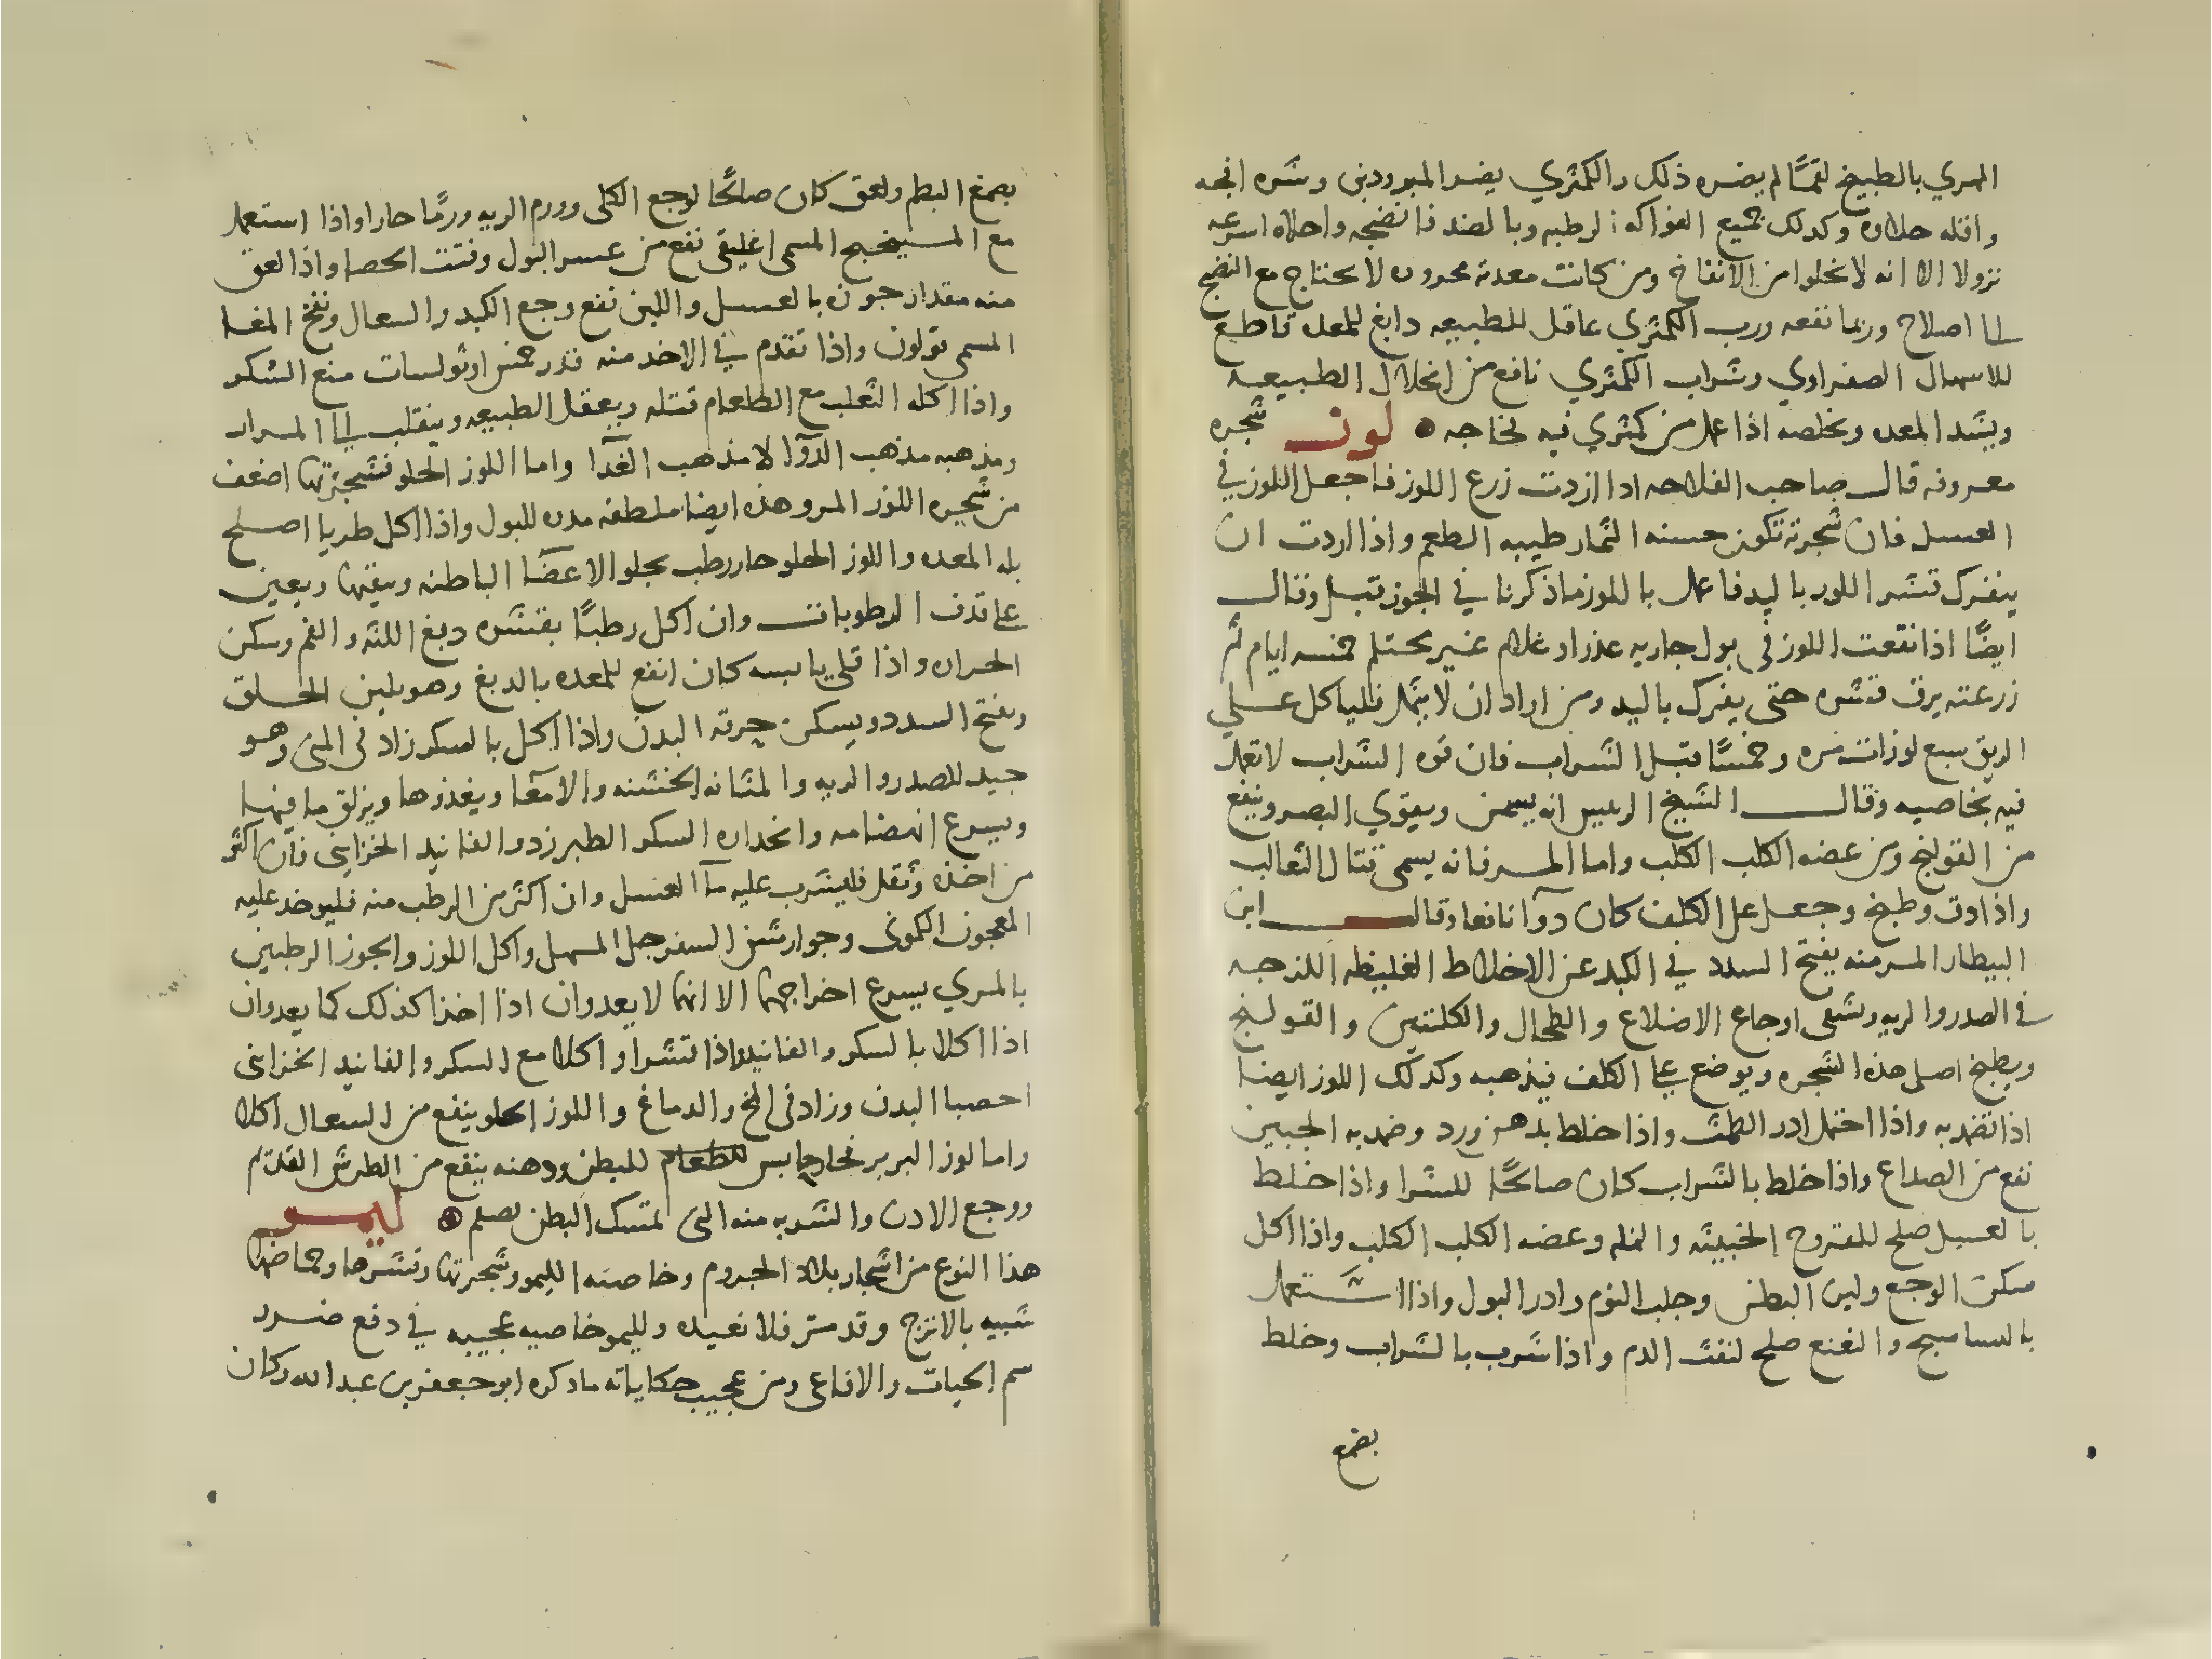 المري بالطبيخ لقمًا لم يضره ذلك والكمثري يضر المبرودين وشره افجه
واقله حلاوه وكدلك جميع الفواكه الرطبه وبالضد فانضجه واحلاه اسرعه
نزولا الا انه لا يخلوا من الانفاخ ومن كانت معدته محروره لا يحتاج مع النضج
الى اصلاح وربما نفعه ورب الكمثري عاقل للطبيعه دابغ للمعده قاطع
للاسهال الصفراوي وشراب الكمثري نافع من انحلال الطبيعه
ويشد المعده وبخاصه اذا عمل من كمثري فيه فجاجه لوز شجره
معروفه قال صاحب الفلاحه ادا اردت زرع اللوز فاجعل اللوز في
العسل فان شجرته تكون حسنه الثمار طيبه الطعم واذا اردت ان
ينفرك قشر اللوز باليد فاعمل باللوز ماذكرنا في الجوز قبل وقال
ايضًا اذا نقعت اللوز في بول جاريه عذرا او غلام غير محتلم خمسه ايام ثم
زرعته يرق قشره حتى يفرك باليد ومن اراد ان لا يثمل فلياكل على
الريق سبع لوزات مره وخمسًا قبل الشراب فان قوه الشراب لا تعمل
فيه بخاصيه وقال الشيخ الرئيس انه يسمن ويقوي البصر وينفع
من القولنج ومن عضه الكلب الكلب واما المر فانه يسمى قتال الثعالب
واذا دق وطبخ وجعل على الكلف كان دوآ نافعا وقال ابن
البيطار المر منه يفتح السدد في الكبد عن الاخلاط الغليظه اللزجه
في الصدر والريه ويشفى اوجاع الاضلاع والطحال والكليتين والقولنج
ويطبخ اصل هذه الشجره ويوضع على الكلف فيذهبه وكدلك اللوز ايضا
اذا تضمد به واذا احتمل ادر الطمث واذا خلط بدهن ورد وضمد به الجبين
نفع من الصداع واذا خلط بالشراب كان صالحًا للشرا واذا خلط
بالعسل صلح للقروح الخبيثه والنمله وعضه الكلب الكلب واذا اكل
سكن الوجع ولين البطن وجلب النوم وادر البول واذا استعمل
بالنسا سبج والنعنع صلح لنفث الدم واذا شرب بالشراب وخلط
بصمغ
بصمغ البطم ولعق كان صالحًا لوجع الكلى وورم الريه ورمًا حارا واذا استعمل
مع الميبختج المسمى اغليقى نفع من عسر البول وفتت الحصا واذا لعق
منه مقدار جوزه بالعسل واللبن نفع وجع الكبد والسعال ونفخ المعا
المسمى قولون واذا تقدم في الاخد منه قدر خمس لوزات منع السكر
واذا اكله الثعلب مع الطعام قتله ويعقل الطبيعه وينقلب الى المرار
ومذهبه مذهب الدوآ لا مذهب الغدآ واما اللوز الحلو فشجرتها اضعف
من شجره اللوز المر وهذه ايضا ملطفه مدره للبول واذا اكل طريا اصلح
بله المعده واللوز الحلو حار رطب يجلو الاعضآ الباطنه وينقيها ويعين
على قذف الرطوبات وان اكل رطبًا بقشره دبغ اللثه والفم وسكن
الحراره واذا قلى يابسه كان انفع للمعده بالدبغ وهو يلين الحلق
ويفتح السدد ويسكن حرقه البدن واذا اكل بالسكر زاد في المنى وهو
جيد للصدر والريه والمثانه الخشنه والامعآ ويغذوها ويزلق ما فيها
ويسرع انهضامه وانحداره السكر الطبرزد والفانيد الخزايني فان اكثر
من اخذه وثقل فليشرب عليه مآ العسل وان اكثر من الرطب منه فليوخد عليه
المعجون الكمونى وجوارشن السفرجل المسهل واكل اللوز والجوز الرطبين
بالمري يسرع اخراجهما الا انهما لا يعدوان اذا اخذا كذلك كما يعدوان
اذا اكلا بالسكر والفانيد واذا قشرا واكلا مع السكر والفانيد الخزاينى
اخصبا البدن وزادا في المخ والدماغ واللوز الحلو ينفع من السعال اكلا
واما لوز البربر فحار حابس للطعام للبطن ودهنه ينفع من الطرش القديم
ووجع الادن والشربه منه التى تمسك البطن ليمو
هذا النوع من اشجار بلاد الجروم وخاصه الليمو وشجرتها وقشرها وحماضها
شبيه بالاترج وقد مر فلا نعيده ولليمو خاصيه عجيبه في دفع ضرر
سم الحيات والافاعى ومن عجيب حكاياته مادكره ابو جعفر بن عبد الله وكان